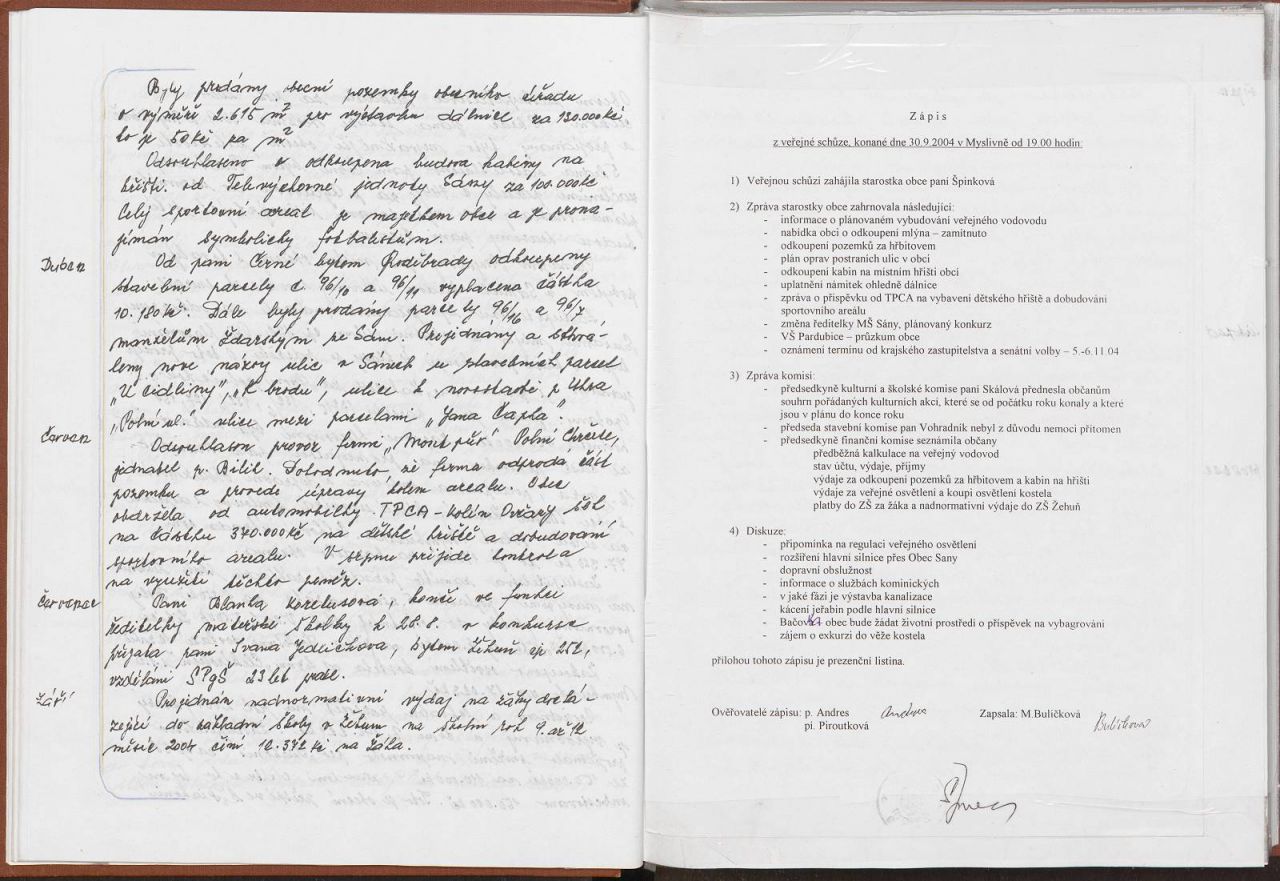 Byly prodány obecní pozemky obecního úřadu
o výměře 2.615 m² pro výstavbu dálnice za 130.000 Kč
to je 50 Kč za m²
Odsouhlaseno a odkoupena budova kabiny na
hřišti od Tělovýchovné jednoty Sány za 100.000 Kč
Celý sportovní areál je majetkem obce a je prona-
jímán symbolicky fotbalistům.
Duben
Od paní Černé bytem Poděbrady odkoupeny
stavební parcely č. 96/10 a 96/11 vyplacena částka
10.180 Kč. Dále byly prodány parcely 96/16 a 96/7
manželům Ždarským ze Sán. Projednány a schvá-
leny nové názvy ulic v Sánech u stavebních parcel
"U Cidliny", "K brodu", ulice k novostavbě p. Uhra
"Polní ul." ulice mezi parcelami "Jana Čapka".
Červen
Odsouhlasen provoz firmě "Mont půr" Polní Chrčice,
jednatel p. Bílik. Dohodnuto, že firma odprodá část
pozemku a provede úpravy kolem areálu. Obec
obdržela od automobilky TPCA - Kolín Ovčáry šek
na částku 370.000 Kč na dětské hřiště a dobudování
sportovního areálu. V srpnu přijede kontrola
na využití těchto peněz.
Červenec
Paní Blanka Kozelusová, končí ve funkci
ředitelky mateřské školky k 25.8. v konkurse
přijata paní Ivana Jedličková, bytem Žehuň čp 252,
vzdělání SPgŠ 23 let praxe.
Září
Projednán nadnormativní výdaj na žáky dochá-
zející do základní školy v Žehuni na školní rok 9. až 12
měsíc 2004 činí 12.372 Kč na žáka.
Zápis
z veřejné schůze, konané dne 30.9.2004 v Myslivně od 19.00 hodin:
1) Veřejnou schůzi zahájila starostka obce paní Špinková
2) Zpráva starostky obce zahrnovala následující:
- informace o plánovaném vybudování veřejného vodovodu
- nabídka obci o odkoupení mlýna – zamítnuto
- odkoupení pozemků za hřbitovem
- plán oprav postraních ulic v obci
- odkoupení kabin na místním hřišti obcí
- uplatnění námitek ohledně dálnice
- zpráva o příspěvku od TPCA na vybavení dětského hřiště a dobudování
sportovního areálu
- změna ředitelky MŠ Sány, plánovaný konkurz
- VŠ Pardubice – průzkum obce
- oznámení termínu od krajského zastupitelstva a senátní volby – 5.-6.11 04
3) Zpráva komisí:
- předsedkyně kulturní a školské komise paní Skálová přednesla občanům
souhrn pořádaných kulturních akcí, které se od počátku roku konaly a které
jsou v plánu do konce roku
- předseda stavební komise pan Vohradník nebyl z důvodu nemoci přítomen
- předsedkyně finanční komise seznámila občany
předběžná kalkulace na veřejný vodovod
stav účtu, výdaje, příjmy
výdaje za odkoupení pozemků za hřbitovem a kabin na hřišti
výdaje za veřejné osvětlení a koupi osvětlení kostela
platby do ZŠ za žáka a nadnormativní výdaje do ZŠ Žehuň
4) Diskuze:
- připomínka na regulaci veřejného osvětlení
- rozšíření hlavní silnice přes Obec Sany
- dopravní obslužnost
- informace o službách kominických
- v jaké fázi je výstavba kanalizace
- kácení jeřabin podle hlavní silnice
- Bačovka obec bude žádat životní prostředí o příspěvek na vybagrování
- zájem o exkurzi do věže kostela
přílohou tohoto zápisu je prezenční listina.
Ověřovatelé zápisu: p. Andres Andres Zapsala: M.Bulíčková
pí. Piroutková Bulíčková